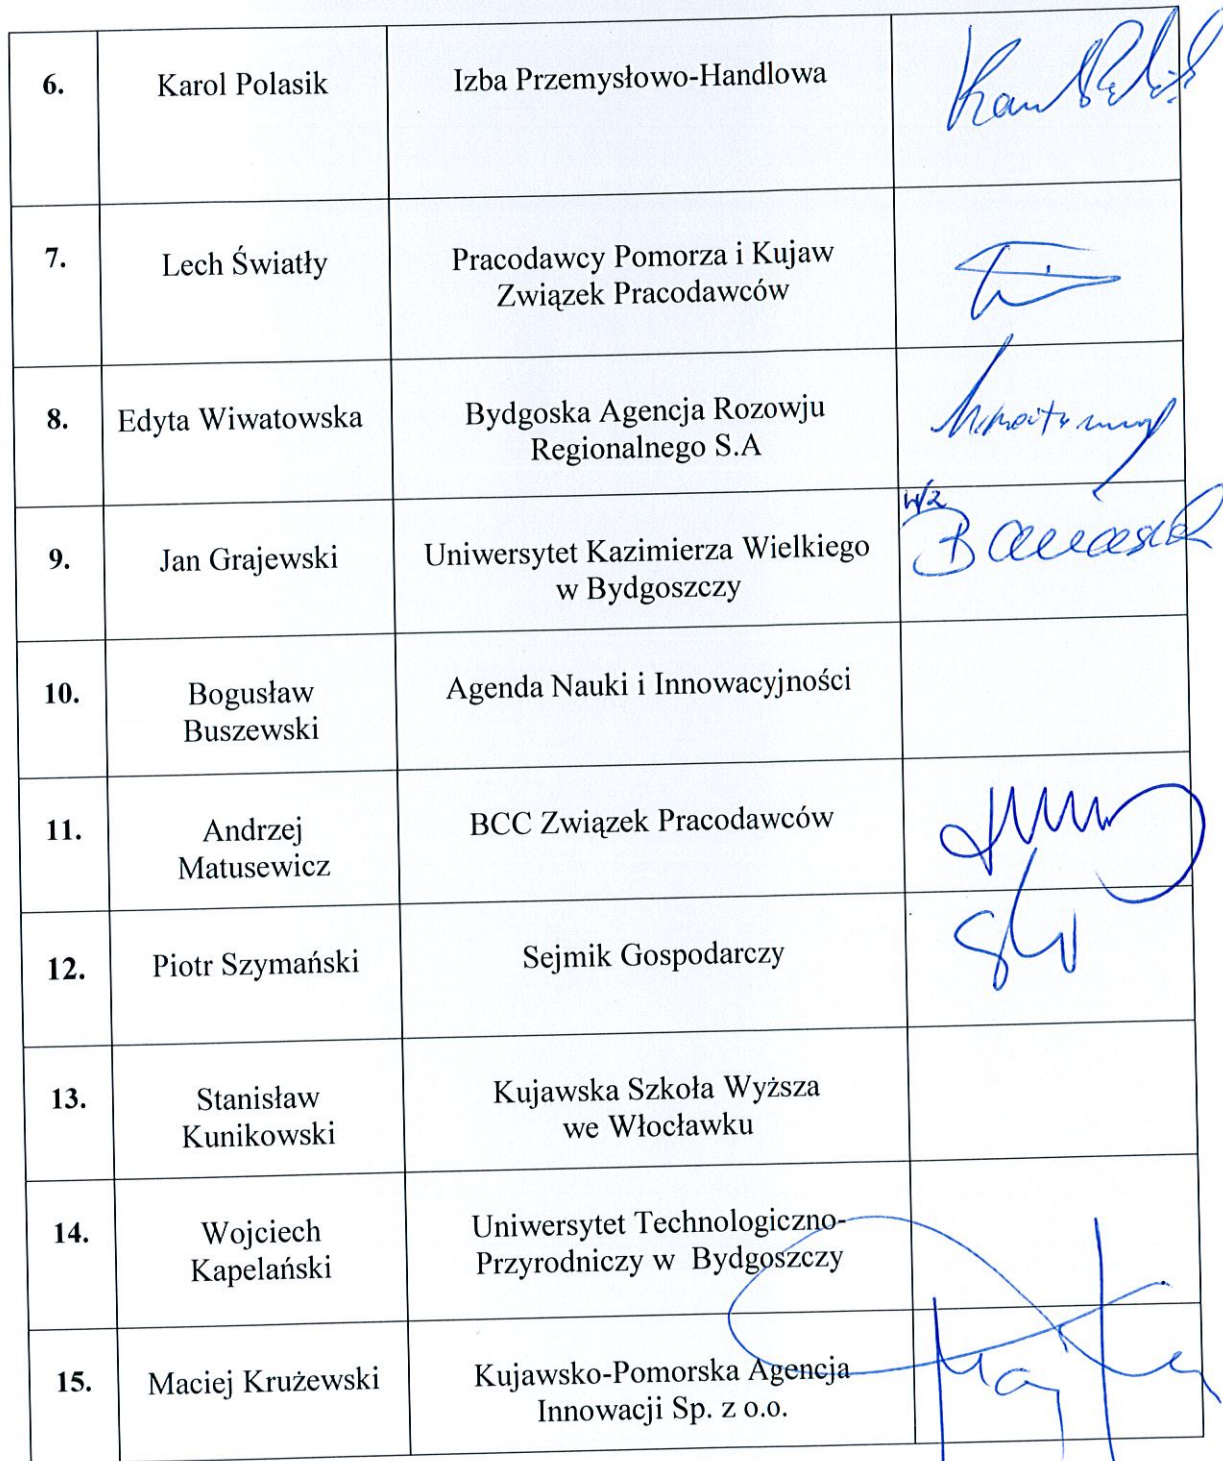 6.
Karol Polasik
Izba Przemysłowo-Handlowa
7.
Lech Światły
Pracodawcy Pomorza i Kujaw
Związek Pracodawców
8.
Edyta Wiwatowska
Bydgoska Agencja Rozowju
Regionalnego S.A
w/z
9.
Jan Grajewski
Uniwersytet Kazimierza Wielkiego
w Bydgoszczy
10.
Bogusław
Buszewski
Agenda Nauki i Innowacyjności
11.
Andrzej
Matusewicz
BCC Związek Pracodawców
12.
Piotr Szymański
Sejmik Gospodarczy
13.
Stanisław
Kunikowski
Kujawska Szkoła Wyższa
we Włocławku
14.
Wojciech
Kapelański
Uniwersytet Technologiczno-
Przyrodniczy w  Bydgoszczy
15.
Maciej Krużewski
Kujawsko-Pomorska Agencja
Innowacji Sp. z o.o.